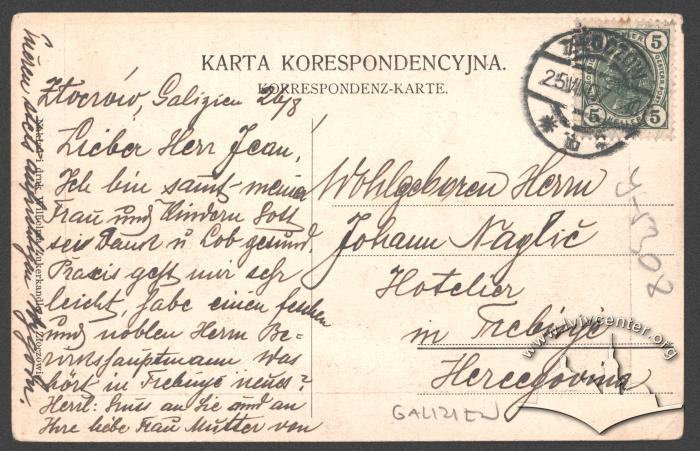 KARTA KORESPONDENCYJNA.
KORRESPONDENZ-KARTE.
Złoczów, Galizien 26/8
Lieber Herr Jean!
Ich bin samt meiner
Frau und Kindern Gott
sei Dank u Lob gesund,
Praxis geht mir sehr
leicht, habe einen feschen
und noblen Herrn Be-
zirkshauptmann was
hört in Trebinje neues?
Herzl: Gruss an Sie und an
Ihre liebe Frau Mutter von
Wohlgeboren Herrn
Johann Naglič
Hotelier
in Trebinje
Hercegovina
GALIZIEN
5
5
5
HELLER
www.lvivcenter.org